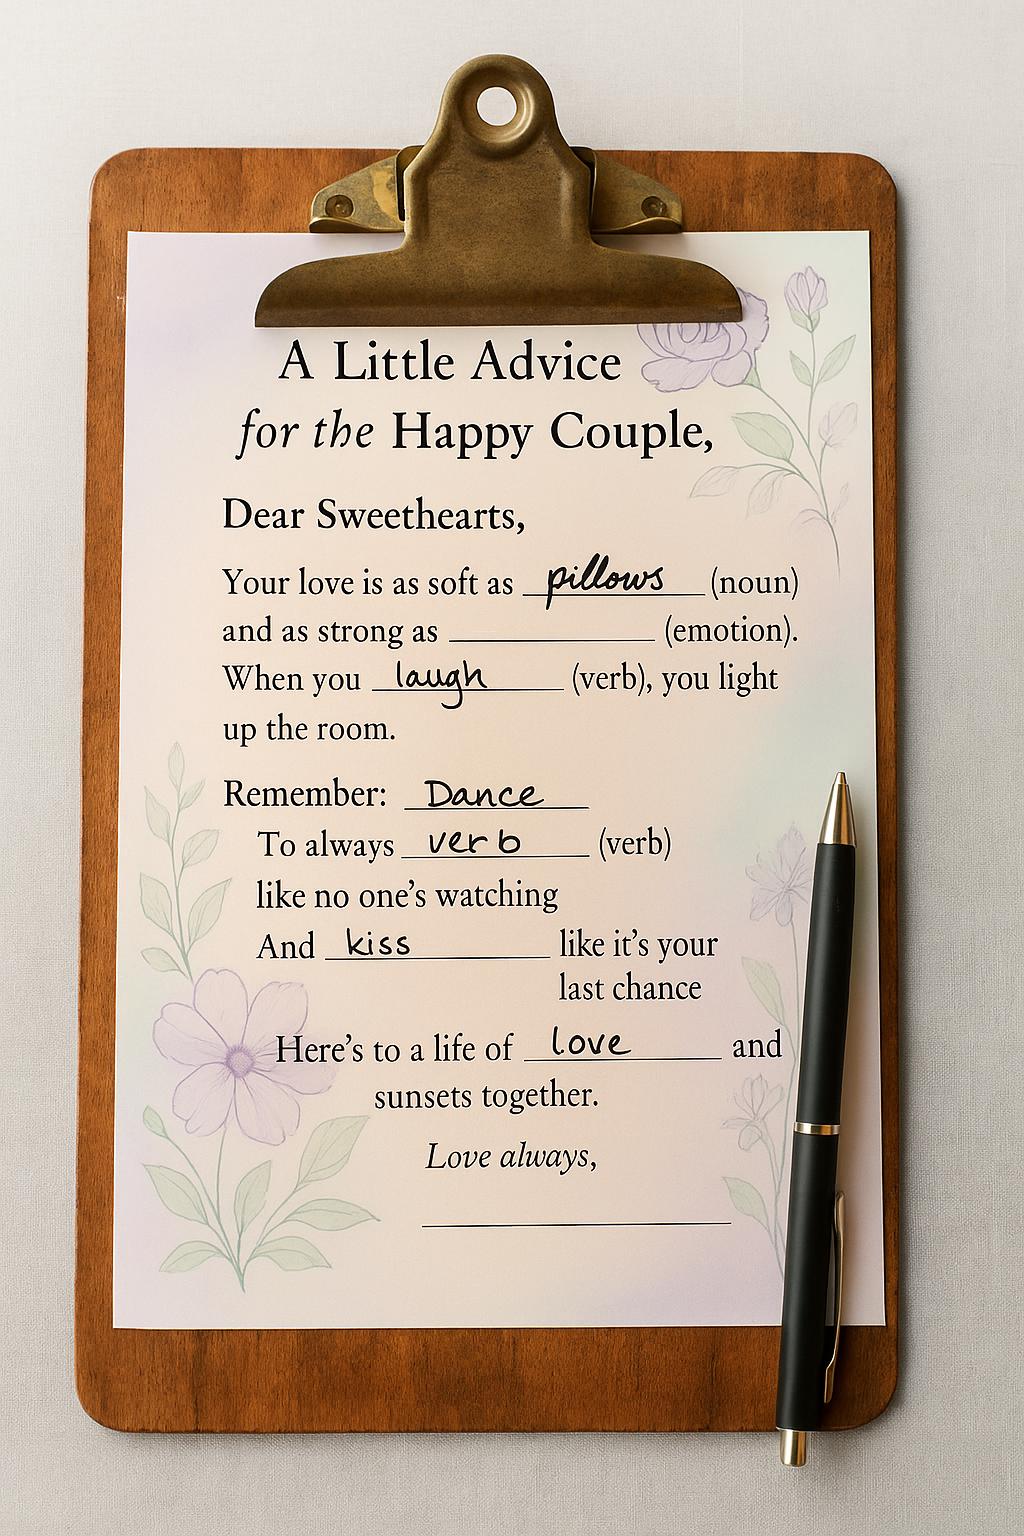 A Little Advice
for the Happy Couple,
Dear Sweethearts,
Your love is as soft as pillows (noun)
and as strong as ____________ (emotion).
When you laugh (verb), you light
up the room.
Remember: Dance
To always verb (verb)
like no one’s watching
And kiss like it’s your
last chance
Here’s to a life of love and
sunsets together.
Love always,